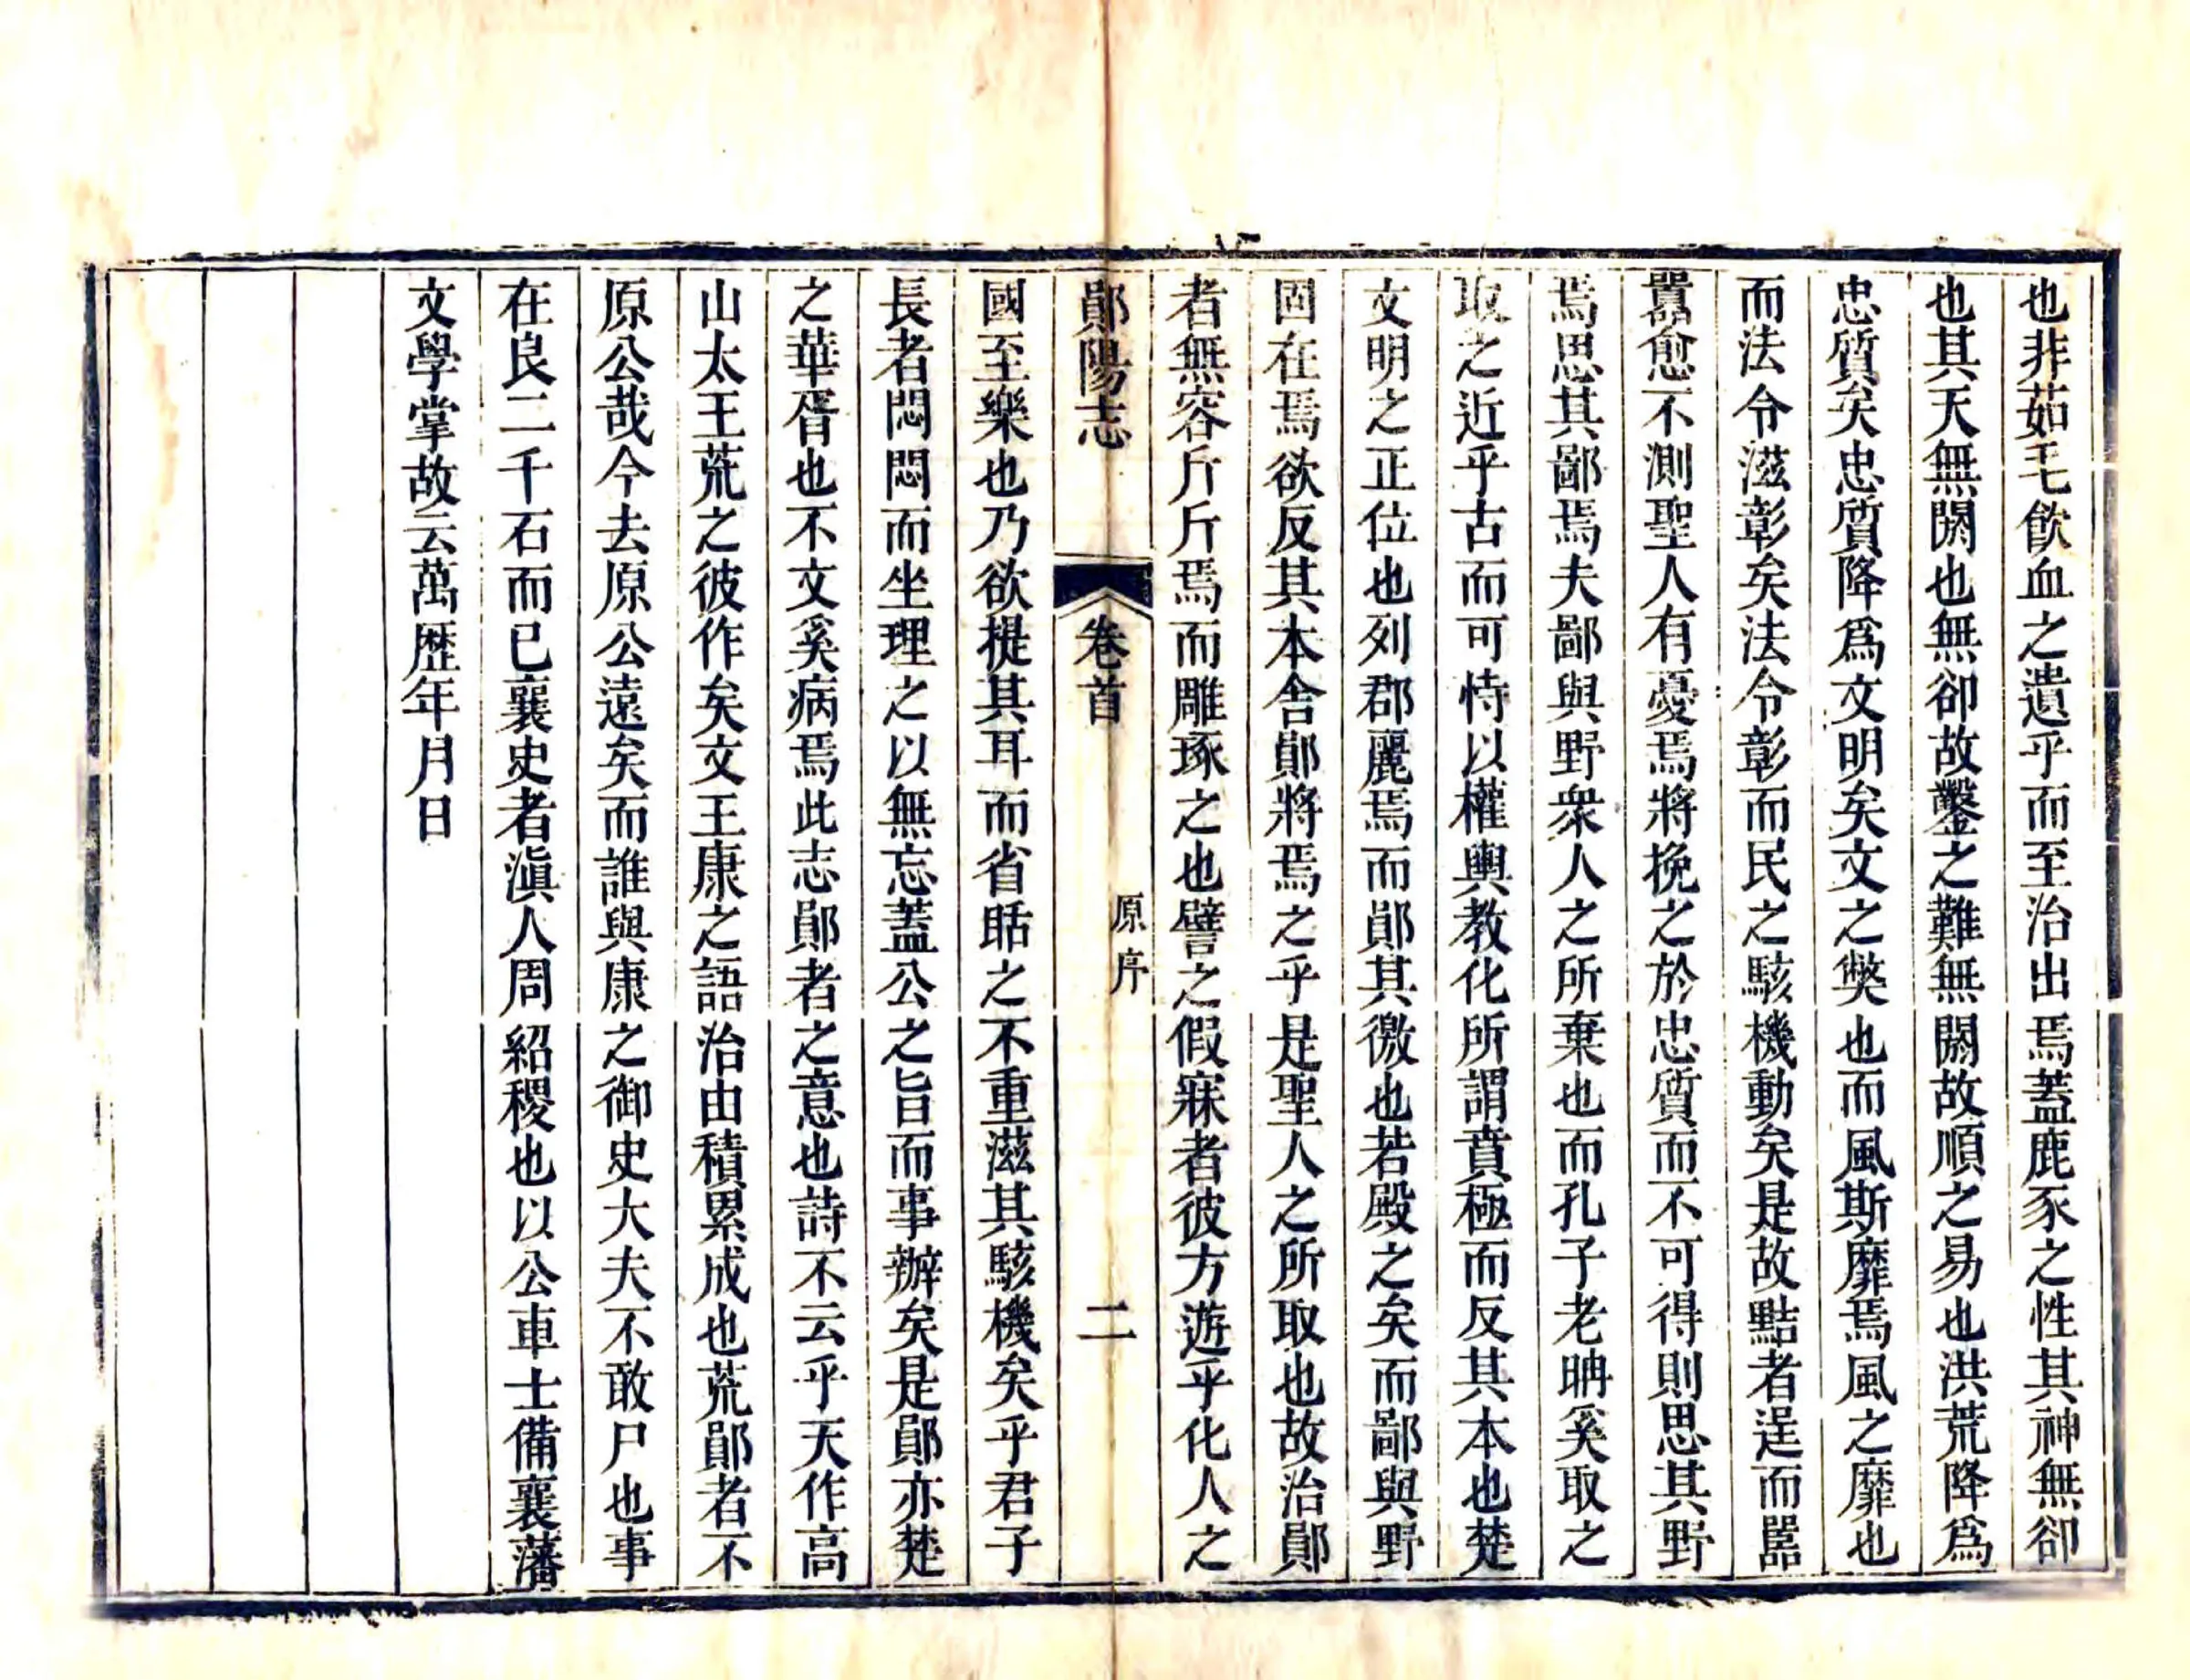 也非茹毛飲血之遺乎而至治出焉蓋鹿豕之性其神無卻
也其天無閼也無卻故鑿之難無閼故順之易也洪荒降爲
忠質矣忠質降爲文明矣文之獘也而風斯靡焉風之靡也
而法令滋彰矣法令彰而民之駭機動矣是故黠者逞而嚚
嚚愈不測聖人有憂焉將挽之於忠質而不可得則思其野
焉思其鄙焉夫鄙與野衆人之所棄也而孔子老聃奚取之
取之近乎古而可恃以權輿教化所謂賁極而反其本也楚
文明之正位也列郡麗焉而鄖其微也若殿之矣而鄙與野
固在焉欲反其本舍鄖將焉之乎是聖人之所取也故治鄖
者無容斤斤焉而雕琢之也譬之假寐者彼方遊乎化人之
鄖陽志
卷首
原序
二
國至樂也乃欲提其耳而省聒之不重滋其駭機矣乎君子
長者悶悶而坐理之以無忘蓋公之旨而事辦矣是鄖亦楚
之華胥也不文奚病焉此志鄖者之意也詩不云乎天作高
山太王荒之彼作矣文王康之語治由積累成也荒鄖者不
原公哉今去原公遠矣而誰與康之御史大夫不敢尸也事
在良二千石而已襄史者滇人周紹稷也以公車士備襄藩
文學掌故云萬歷年月日